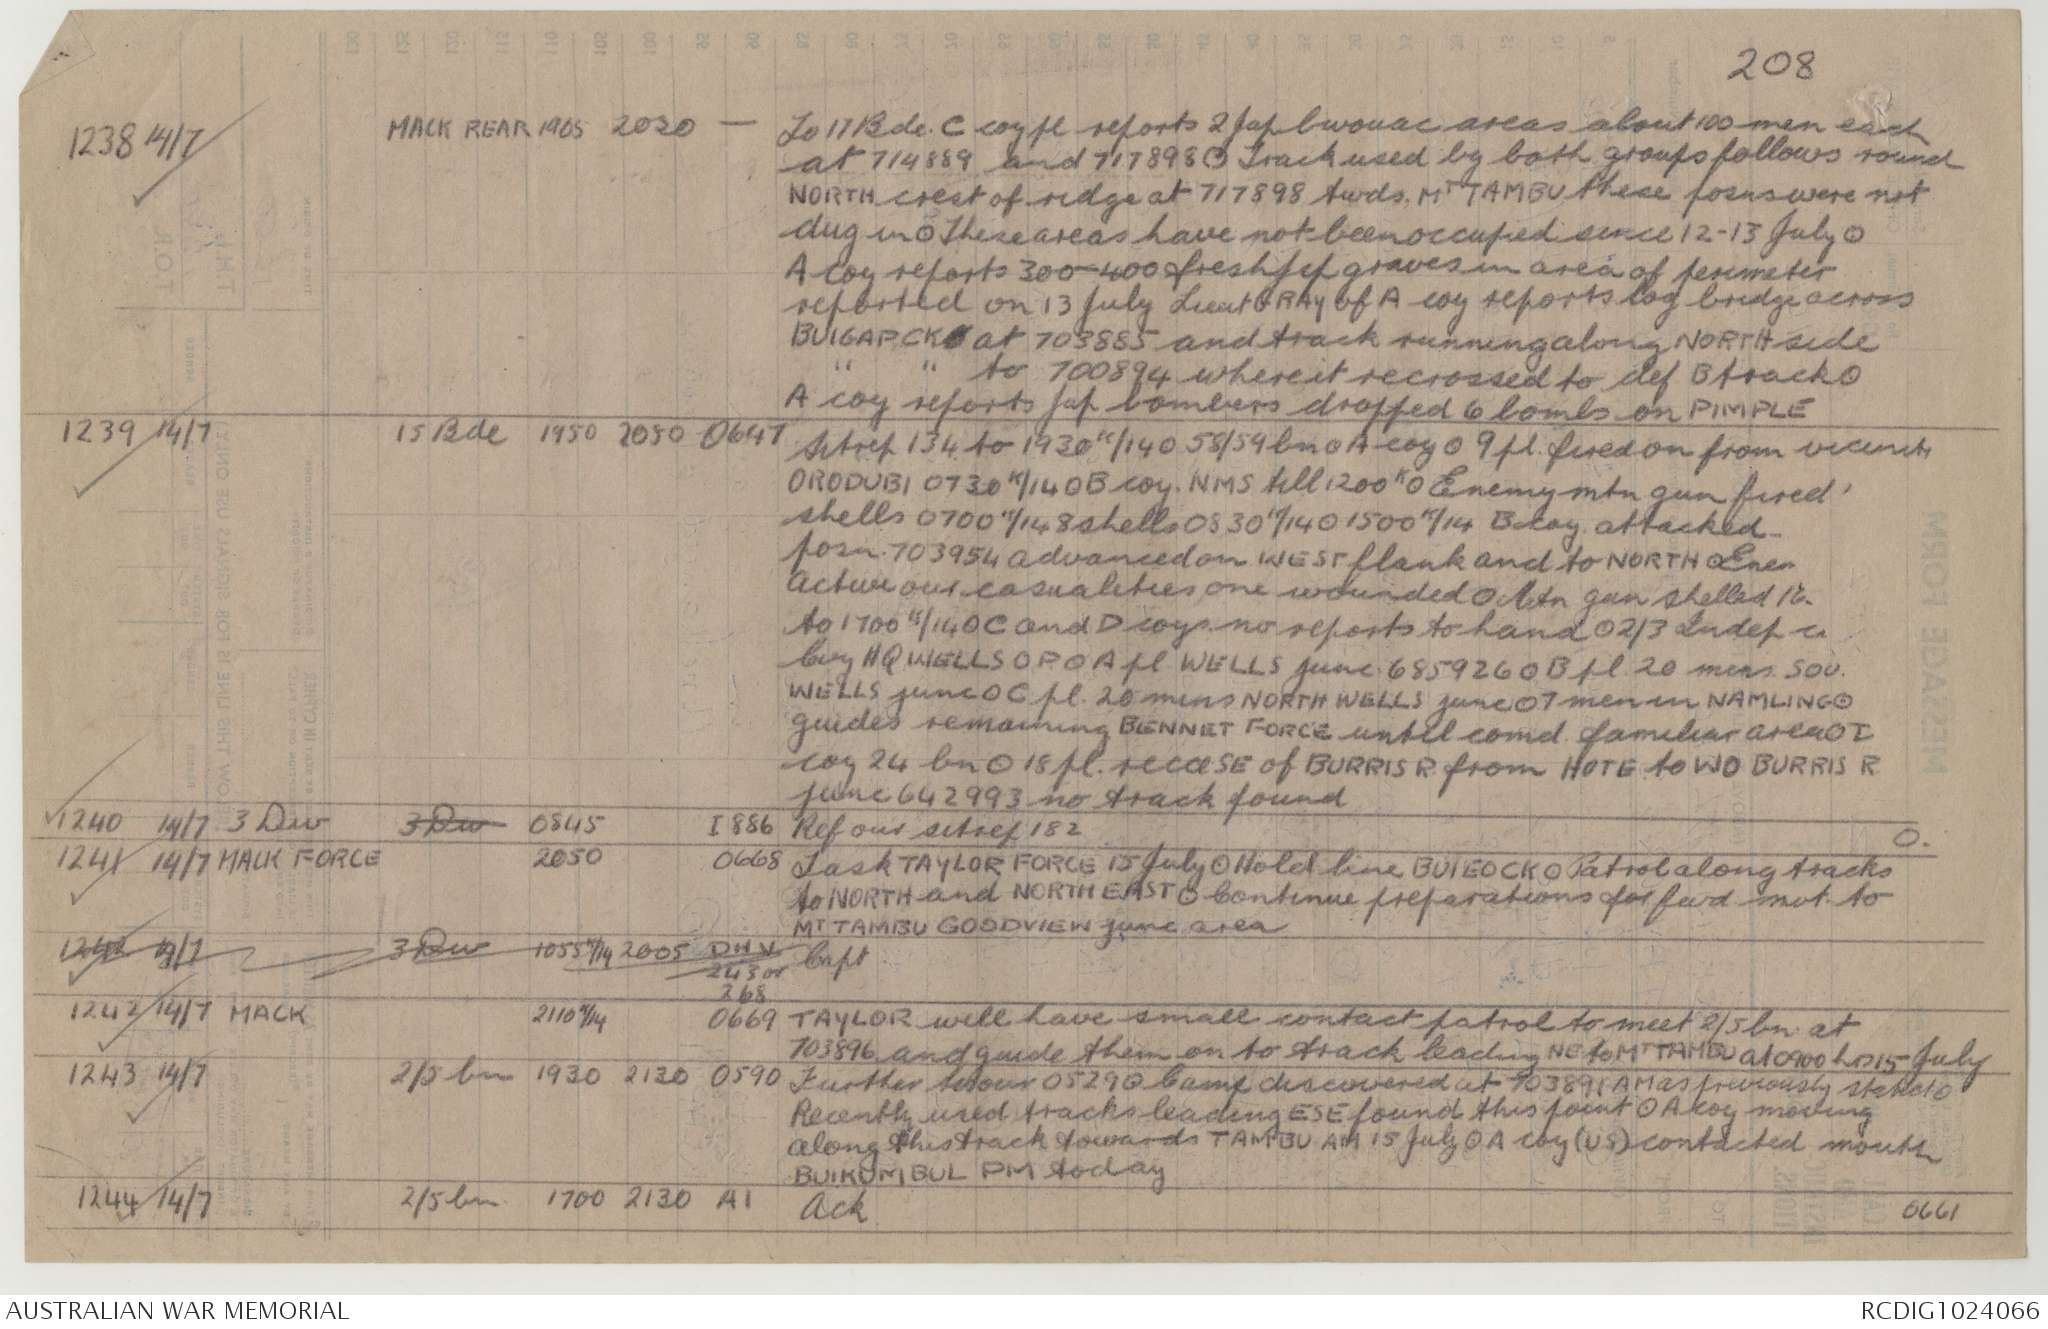 208
1238 14/7 MACK REAR 1905 2020 — To 17 Bde. C coy pl reports 2 Jap bivouac areas about 100 men each
at 714889 and 717898 O Track used by both groups follows round
NORTH crest of ridge at 717898 twds. MT TAMBU these posns were not
dug in O These areas have not been occupied since 12-13 July O
A coy reports 300-400 fresh Jap graves in area of perimeter
reported on 13 July Lieut GRAY of A coy reports log bridge across
BUIGAP CK at 703885 and track running along NORTH side
" " to 700894 where it recrossed to def B track O
A coy reports Jap bombers dropped 6 bombs on PIMPLE
1239 14/7 15 Bde 1950 2050 0647 Sitrep 134 to 1930K/14 O 58/59 bn O A coy O 9 pl. fired on from vicinity
ORODUBI 0730K/14 O B coy. NMS till 1200K O Enemy mtn gun fired
shells 0700K/14 8 shells 0830K/14 O 1500K/14 B coy attacked
posn. 703954 advanced on WEST flank and to NORTH O Enem
active our casualities one wounded O Mtn gun shelled
to 1700K/14 O C and D coys. no reports to hand O 2/3 Indep c
Coy HQ WELLS O P O A pl WELLS junc. 685926 O B pl. 20 mins. SOU.
WELLS junc O C pl. 20 mins NORTH WELLS junc O 7 men in NAMLING O
guides remaining BENNET FORCE until comd. familiar area O I
coy 24 bn O 18 pl. recce SE of BURRIS R from HOTE to WO BURRIS R
junc 642993 no track found
1240 14/7 3 Div 3 Div 0845 I 886 Ref our sitrep 182 O.
1241 14/7 MACK FORCE 2050 0668 Task TAYLOR FORCE 15 July O Hold line BUIEO CK O Patrol along tracks
to NORTH and NORTH EAST O Continue preparations for fwd mvt. to
MT TAMBU GOODVIEW junc area
1242 14/7 3 Div 1055K/14 2005 DHV Capt
243 or
268
1242 14/7 MACK 2110K/14 0669 TAYLOR will have small contact patrol to meet 2/5 bn at
703896 and guide them on to track leading NE to MT TAMBU at 0900 hrs 15 July
1243 14/7 2/5 bn 1930 2130 0590 Further to our 0529 O Camp discovered at 703891 AM as previously stated O
Recently used tracks leading ESE found this point O A coy moving
along this track towards TAMBU AM 15 July O A coy (US) contacted mouth
BUIKUMBUL PM today
1244 14/7 2/5 bn 1700 2130 A1 Ack 0661
MESSAGE FORM
AUSTRALIAN WAR MEMORIAL
RCDIG1024066